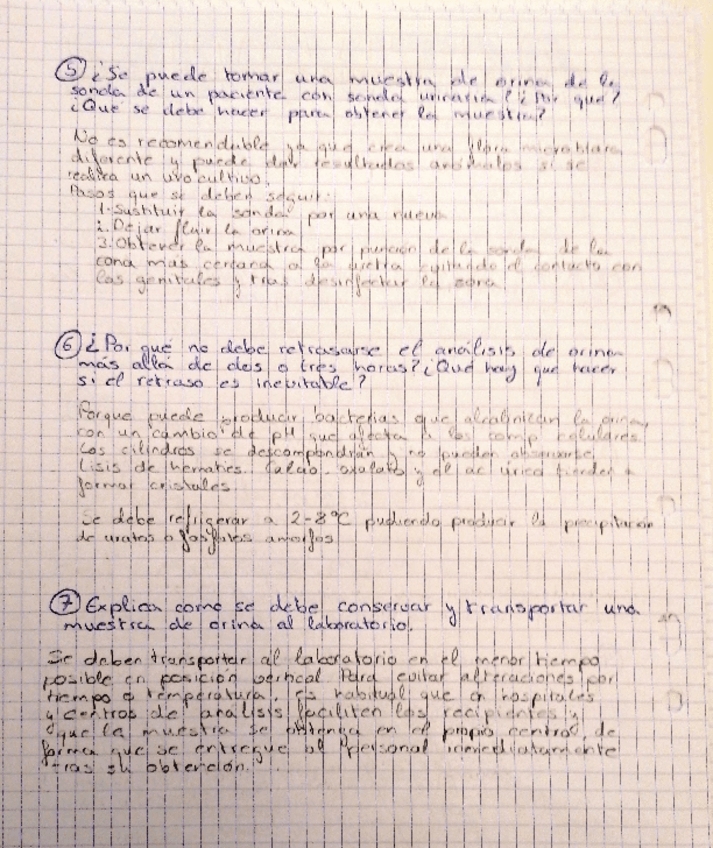 ⑤ ¿Se puede tomar una muestra de orina de la
sonda de un paciente con sonda urinaria? ¿Por qué?
¿Qué se debe hacer para obtener la muestra?
No es recomendable ya que crea una flora microbiana
diferente y puede dar resultados anómalos si se
realiza un urocultivo.
Pasos que se deben seguir:
1. Sustituir la sonda por una nueva
2. Dejar fluir la orina
3. Obtener la muestra por punción de la sonda de la
zona más cercana a la uretra evitando el contacto con
los genitales y tras desinfectar la zona
⑥ ¿Por qué no debe retrasarse el análisis de orina
más allá de dos o tres horas? ¿Qué hay que hacer
si el retraso es inevitable?
Porque puede producir bacterias que alcalinizan la orina,
con un cambio de pH que afecta a los comp celulares.
Los cilindros se descompondrán y no pueden observarse,
lisis de hematíes. Calcio, oxalato y el ac úrico tienden a
formar cristales.
Se debe refrigerar a 2-8ºC pudiendo producir la precipitación
de uratos o fosfatos amorfos
⑦ Explica como se debe conservar y transportar una
muestra de orina al laboratorio.
Se deben transportar al laboratorio en el menor tiempo
posible en posición vertical. Para evitar alteraciones por
tiempo o temperatura, es habitual que en hospitales
y centros de análisis faciliten los recipientes y
que la muestra se obtenga en el propio central, de
forma que se entregue al personal inmediatamente
tras su obtención.